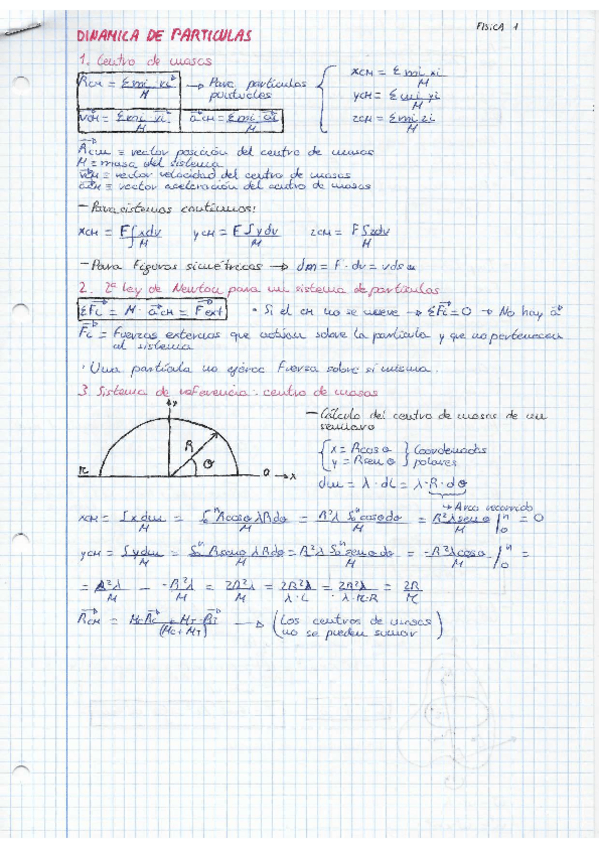 FISICA 1
DINAMICA DE PARTICULAS
1. Centro de masas
R⃗CM = Σmi r⃗i / M → Para partículas puntuales
xCM = Σmi xi / M
yCM = Σmi yi / M
zCM = Σmi zi / M
v⃗CM = Σmi v⃗i / M   a⃗CM = Σmi a⃗i / M
R⃗CM ≡ vector posición del centro de masas
M = masa del sistema
v⃗CM ≡ vector velocidad del centro de masas
a⃗CM ≡ vector aceleración del centro de masas
- Para sistemas continuos:
- Para Figuras simétricas →
2. 2ª ley de Newton para un sistema de partículas
ΣF⃗i = M · a⃗CM = F⃗ext • Si el CM no se mueve → ΣF⃗i = 0 → No hay a⃗
F⃗i = Fuerzas externas que actúan sobre la partícula y que no pertenecen
al sistema
· Una partícula no ejerce Fuerza sobre si misma.
3 Sistema de referencia: centro de masas
y
R
θ
π
0
x
- Cálculo del centro de masas de un
semiaro
{ x = R cos θ } Coordenadas
{ y = R sen θ } polares
dm = λ · dL = λ · R · dθ
↳ Arco recorrido
xCM = ∫x dm / M = ∫₀^π R cos θ λR dθ / M = R²λ ∫₀^π cos θ dθ / M = R²λ sen θ / M |₀^π = 0
yCM = ∫y dm / M = ∫₀^π R sen θ λR dθ / M = R²λ ∫₀^π sen θ dθ / M = -R²λ cos θ / M |₀^π =
= R²λ / M - -R²λ / M = 2R²λ / M = 2R²λ / λ·L = 2R²λ / λ·π·R = 2R / π
R⃗CM = MC R⃗C + MT · R⃗T / (MC + MT) → (Los centros de masas
no se pueden sumar)